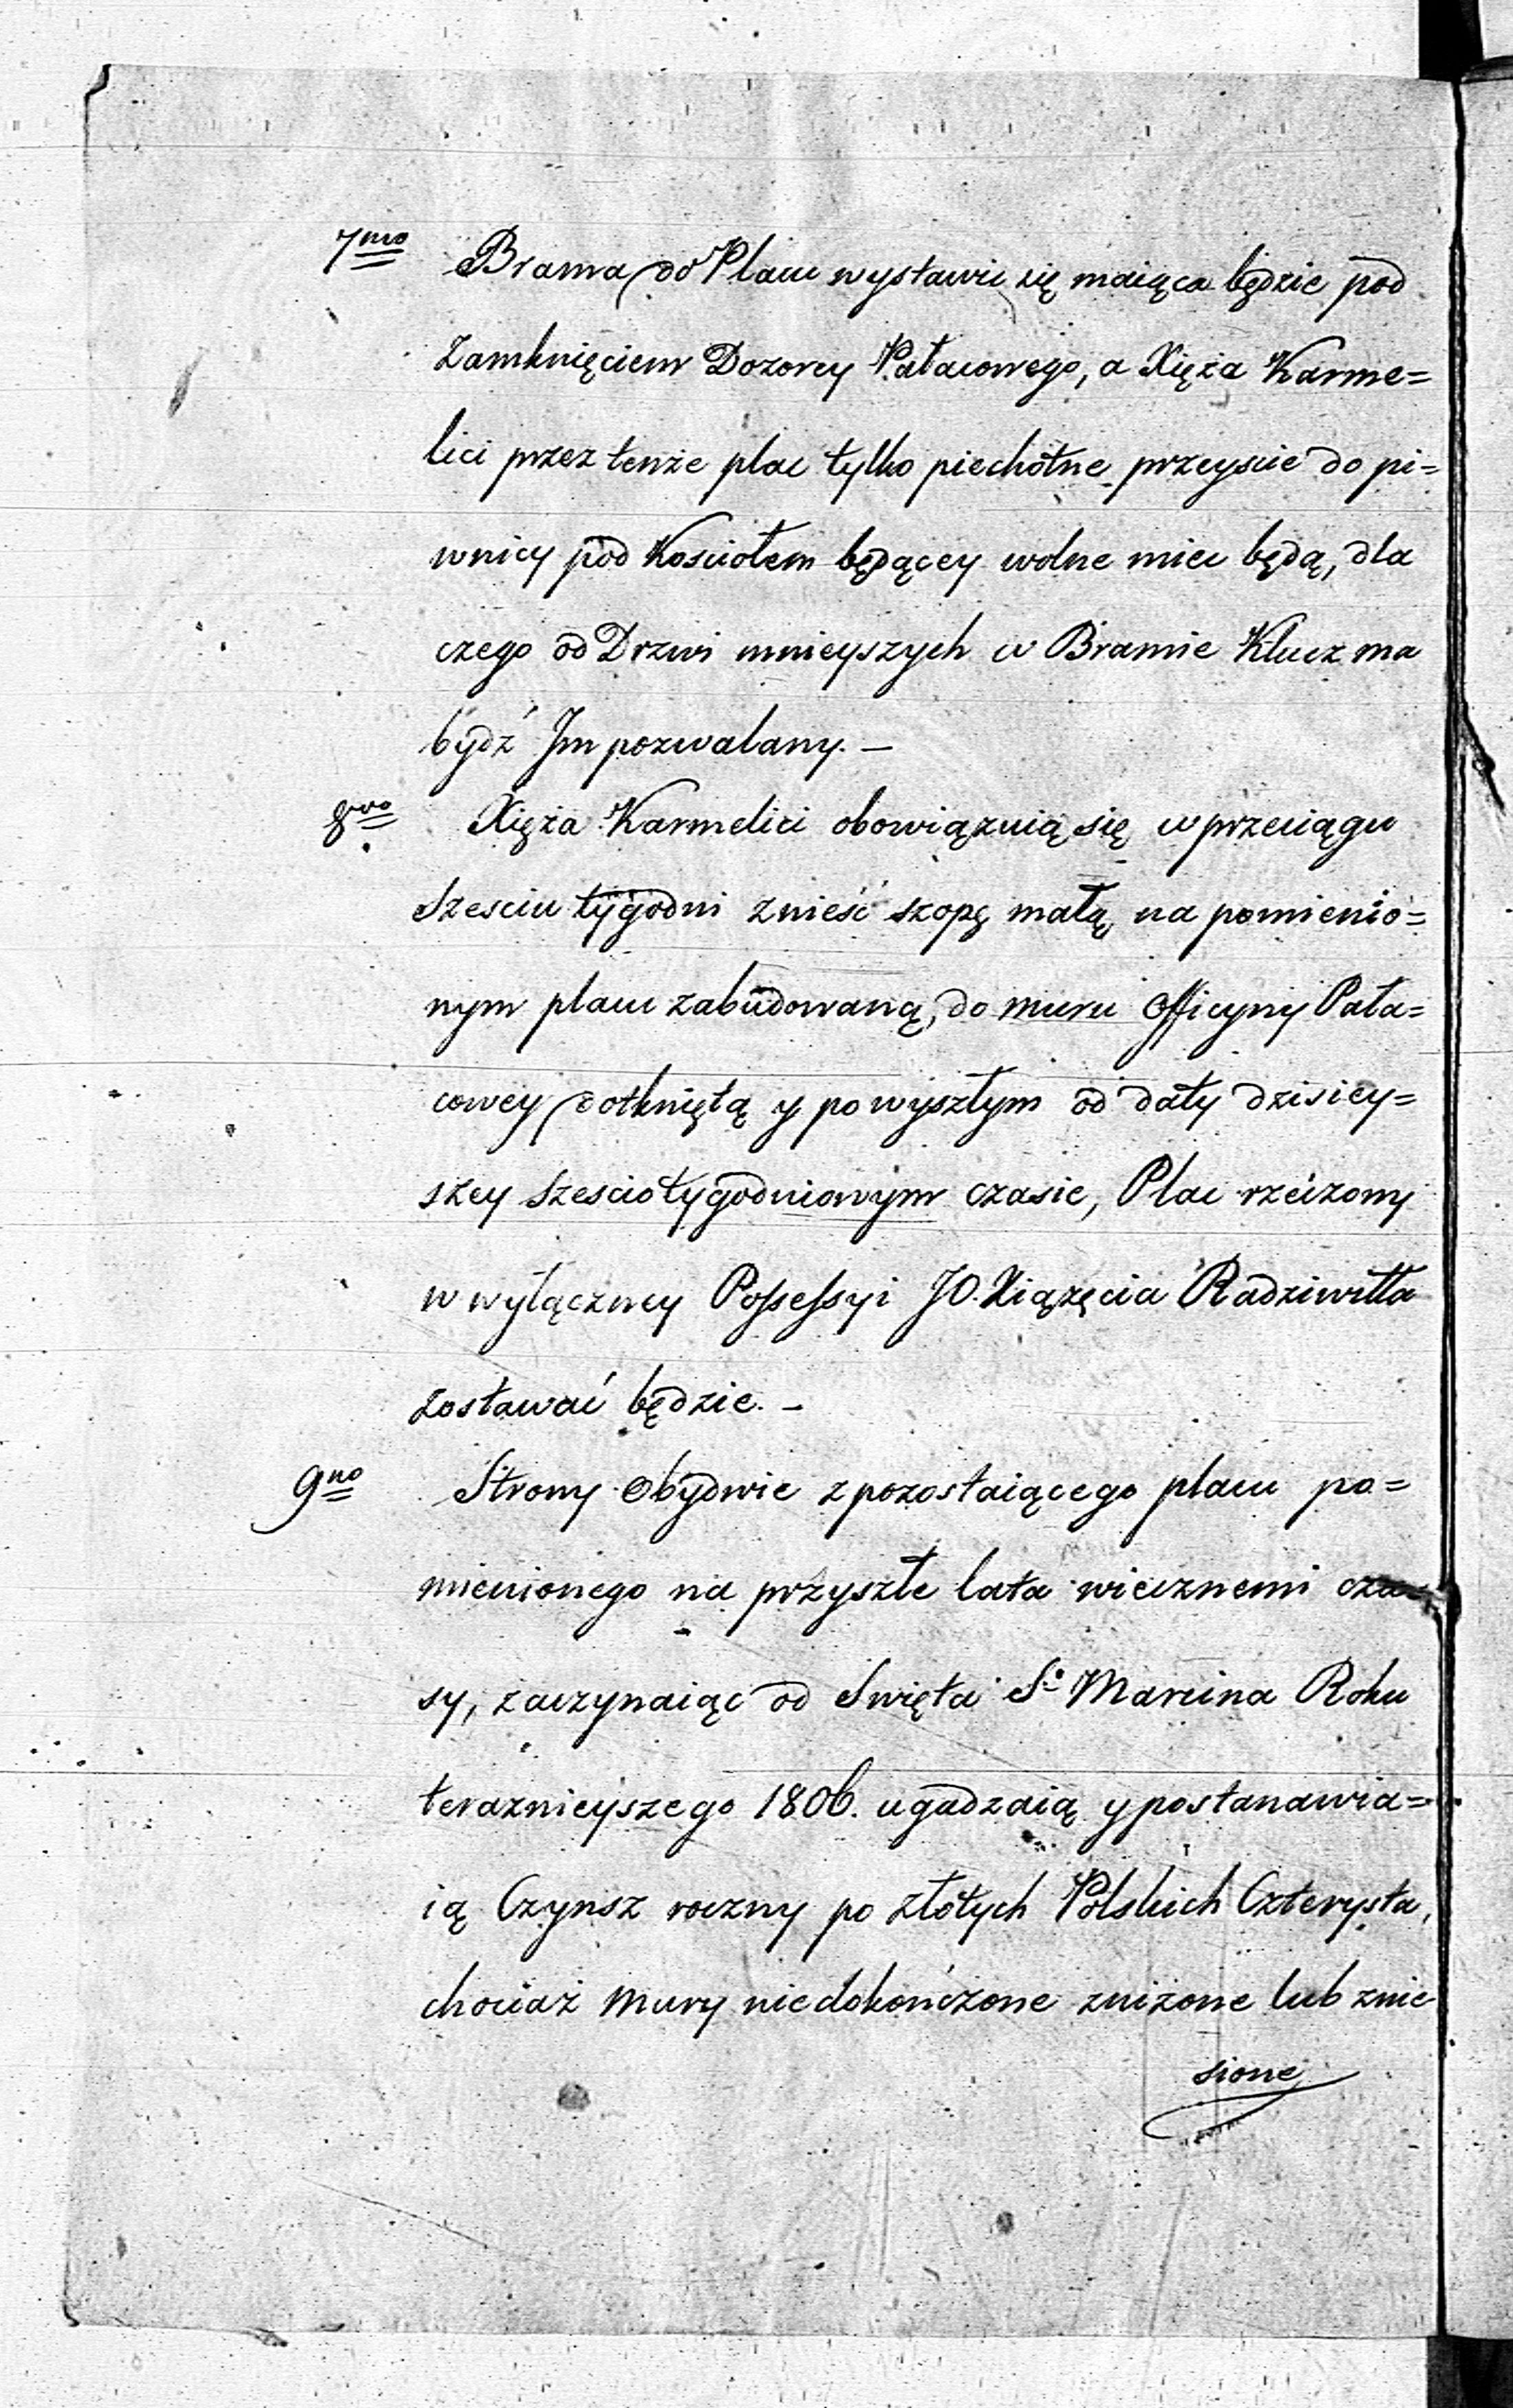 7mo Brama do Placu wystawić się maiąca będzie pod
Zamknięciem Dozorcy Pałacowego, a Xięża Karme=
lici przez tenże plac tylko piechótne przeyscie do pi=
wnicy pod Kosciołem będącey wolne miec będą, dla
czego od Drzwi mnieyszych w Bramie Klucz ma
bydź Jm pozwalany. —
8vo Xięża Karmelici obowiązuią się w przeciągu
Szesciu tygodni znieść szopę małą na pomienio=
nym placu zabudowaną, do muru Officyny Pała=
cowey dotkniętą y po wyszłym od daty dzisiey=
szey Szesciotygodniowym czasie, Plac rzeczony
w wyłączney Possessyi JO. Xiążęcia Radziwiłła
zostawać będzie. —
9no Strony obydwie z pozostaiącego placu po=
mienionego na przyszłe lata wiecznemi cza
sy, zaczynaiąc od Swięta S. Marcina Roku
teraznieyszego 1806. ugadzaią y postanawia=
ią Czynsz roczny po złotych Polskich Czterysta,
chociaż mury niedokończone zniżone lub znie
sione